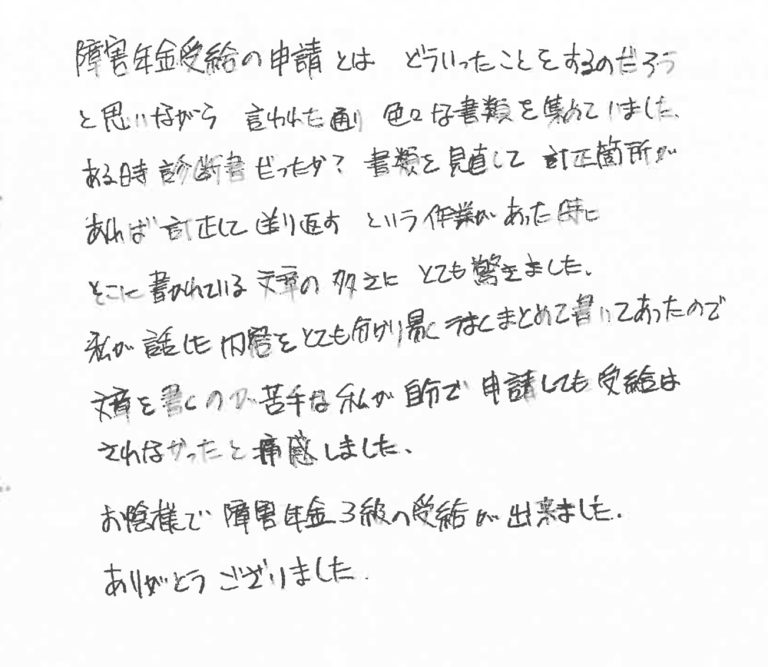 障害年金受給の申請とは どういったことをするのだろう
と思いながら 言われた通り 色々な書類を集めていました、
ある時 診断書だったか? 書類を見直して 訂正箇所が
あれば 訂正して送り返す という作業があった時に
そこに書かれている文章の多さに とても驚きました、
私が話した内容をとても分かり易く うまくまとめて書いてあったので
文章を書くのが苦手な私が 自分で 申請しても 受給は
されなかったと痛感しました、
お陰様で 障害年金3級の受給が出来ました.
ありがとうございました.